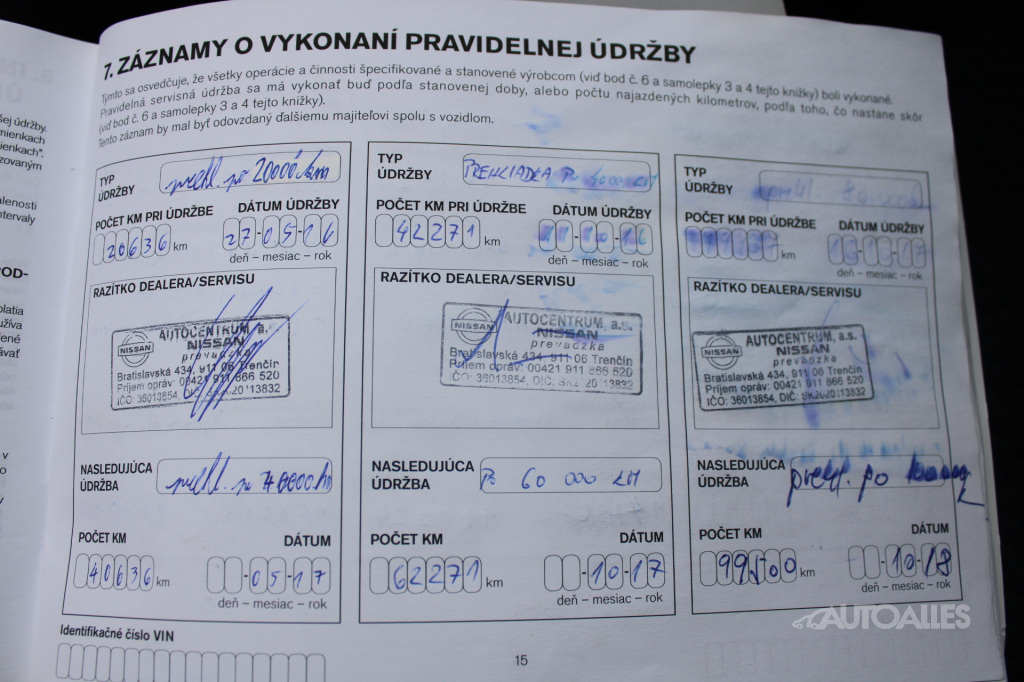 7. ZÁZNAMY O VYKONANÍ PRAVIDELNEJ ÚDRŽBY
Týmto sa osvedčuje, že všetky operácie a činnosti špecifikované a stanovené výrobcom (viď bod č. 6 a samolepky 3 a 4 tejto knižky) boli vykonané.
Pravidelná servisná údržba sa má vykonať buď podľa stanovenej doby, alebo počtu najazdených kilometrov, podľa toho, čo nastane skôr
(viď bod č. 6 a samolepky 3 a 4 tejto knižky).
Tento záznam by mal byť odovzdaný ďalšiemu majiteľovi spolu s vozidlom.
TYP
ÚDRŽBY
prehl. po 20000 km
POČET KM PRI ÚDRŽBE
DÁTUM ÚDRŽBY
20636 km
27-05-16
deň – mesiac – rok
RAZÍTKO DEALERA/SERVISU
AUTOCENTRUM, a.
NISSAN
NISSAN
prevádzka
Bratislavská 434, 911 06 Trenčín
Príjem opráv: 00421 911 866 520
IČO: 36013854, DIČ: 13832
NASLEDUJÚCA
ÚDRŽBA
prehl. po
POČET KM
DÁTUM
40636 km
-05-17
deň – mesiac – rok
TYP
ÚDRŽBY
PREHLIADKA Po 40000 KM
POČET KM PRI ÚDRŽBE
DÁTUM ÚDRŽBY
42271 km
deň – mesiac – rok
RAZÍTKO DEALERA/SERVISU
AUTOCENTRUM, a.s.
NISSAN
NISSAN
prevádzka
Bratislavská 434, 911 06 Trenčín
Príjem opráv: 00421 911 866 520
IČO: 36013854, DIČ: 13832
NASLEDUJÚCA
ÚDRŽBA
Po 60 000 KM
POČET KM
DÁTUM
62271 km
-10-17
deň – mesiac – rok
TYP
ÚDRŽBY
prehl
POČET KM PRI ÚDRŽBE
DÁTUM ÚDRŽBY
km
deň – mesiac – rok
RAZÍTKO DEALERA/SERVISU
AUTOCENTRUM, a.s.
NISSAN
NISSAN
prevádzka
Bratislavská 434, 911 06 Trenčín
Príjem opráv: 00421 911 866 520
IČO: 36013854, DIČ: SK2020113832
NASLEDUJÚCA
ÚDRŽBA
prehl. po
POČET KM
DÁTUM
99500 km
-10-18
deň – mesiac – rok
Identifikačné číslo VIN
15
AUTOALLES